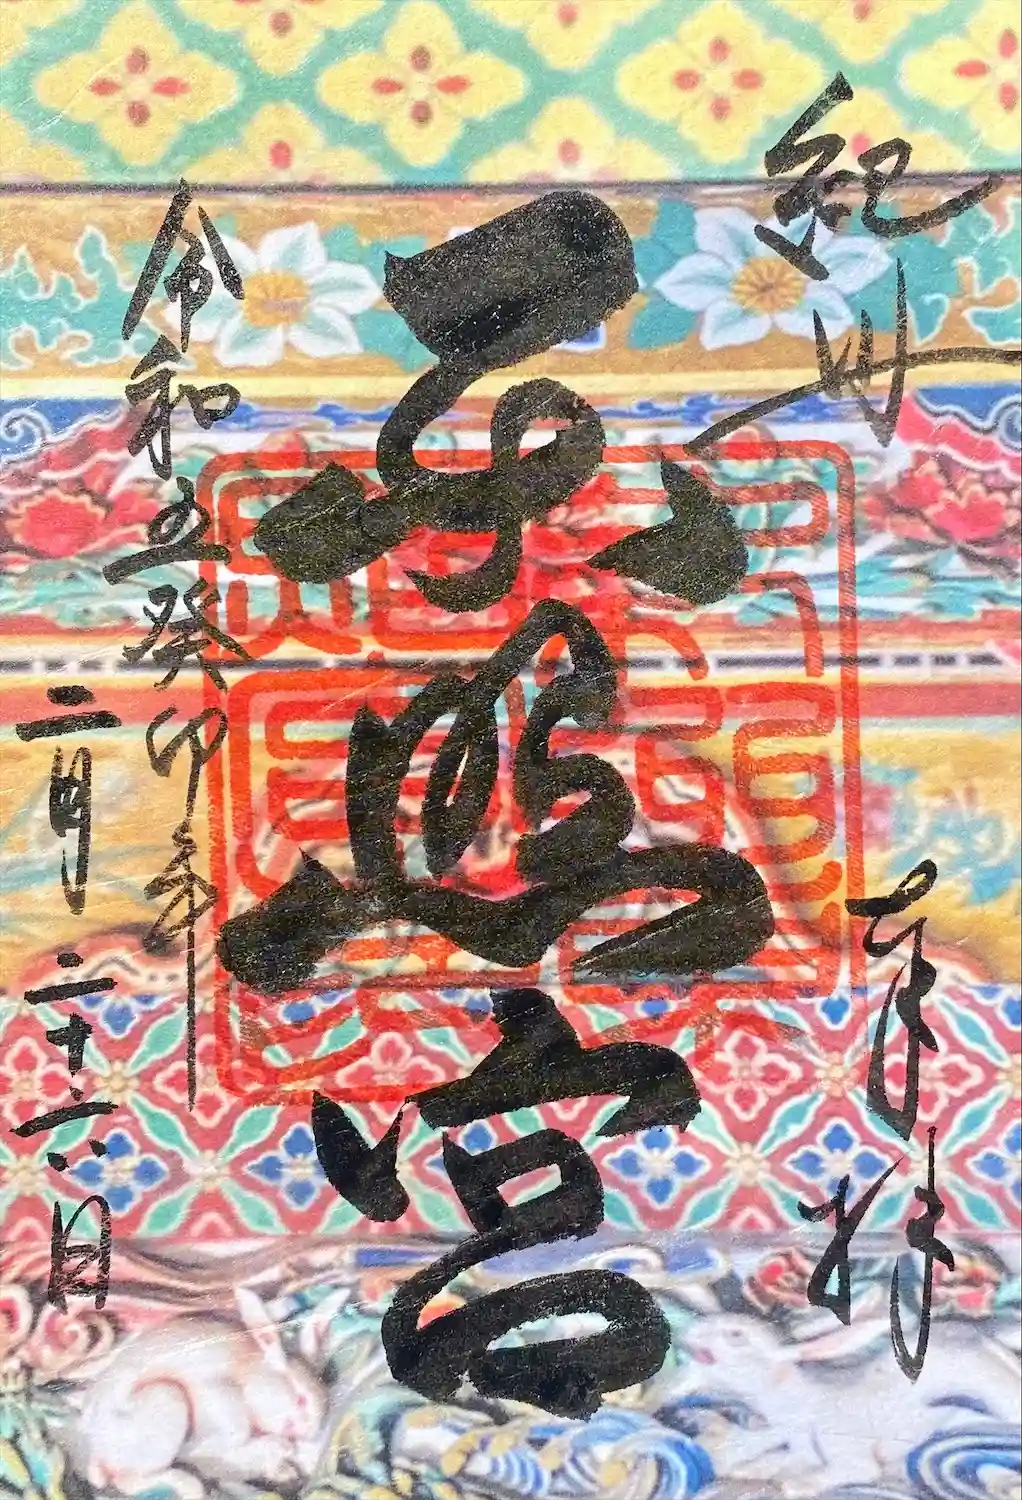 紀州
奉拝
天満宮
令和五癸卯年
二月二十六日